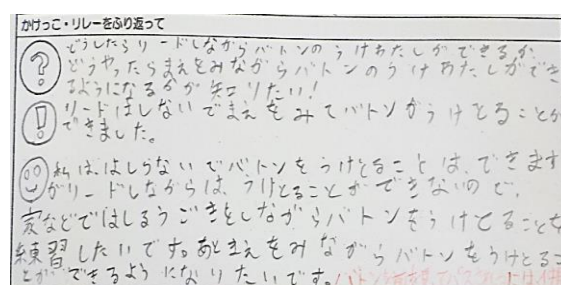 かけっこ・リレーをふり返って
? どうしたらリードしながらバトンのうけわたしができるか、
どうやったらまえをみながらバトンのうけわたしができ
るようになるかが知りたい!
! リードはしないでまえをみてバトンがうけとることが
できました。
私は、はしらないでバトンをうけとることは、できます
がリードしながらは、うけとることができないので、
家などではしるうごきをしながらバトンをうけてることを
練習したいです。あとまえをみながらバトンをうけとるこ
とができるようになりたいです。バトン